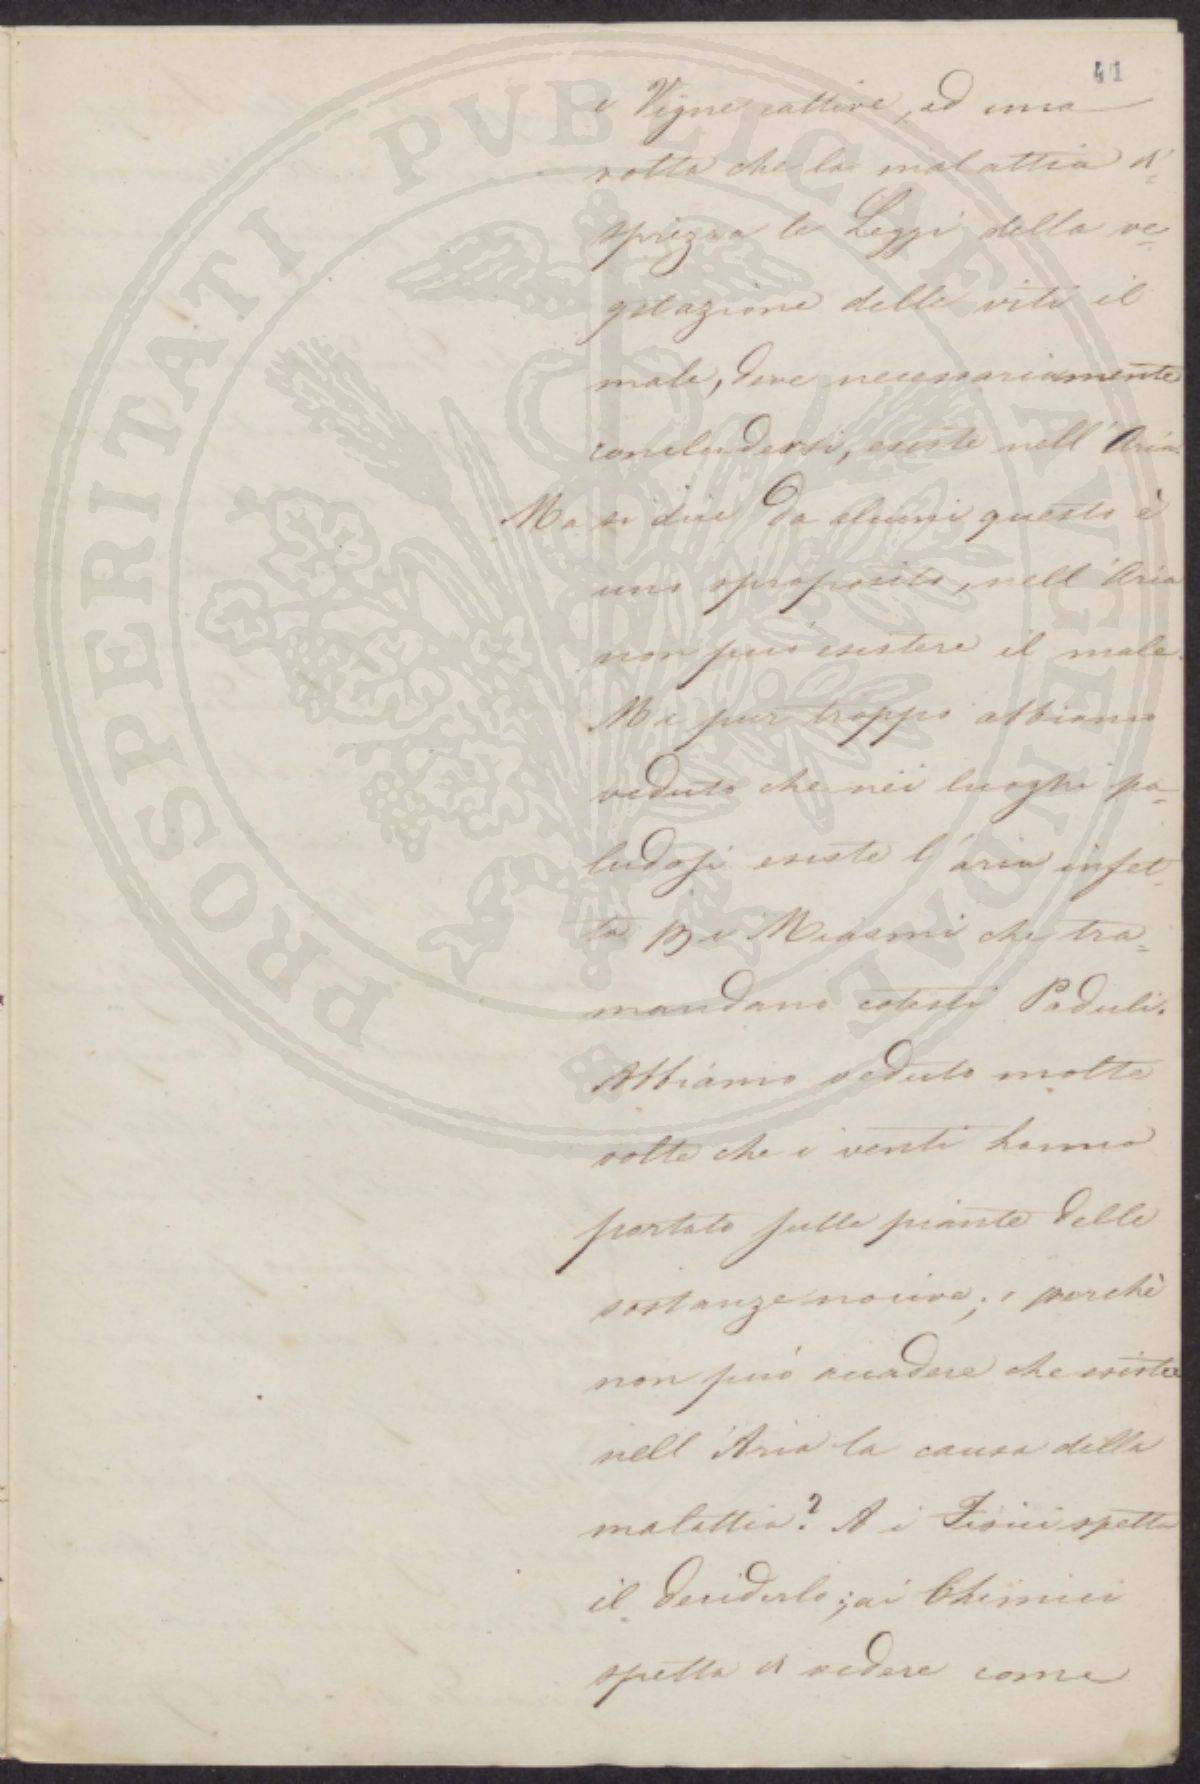 41
e Vigne cattive, ed una
volta che la malattia di=
sprezza le Leggi della ve=
getazione delle viti il
male, deve necessariamente
concludersi, esiste nell'Aria.
Ma si dice da alcuni questo è
uno sproposito, nell'Aria
non può esistere il male.
Ma pur troppo abbiamo
veduto che nei luoghi pa=
ludosi esiste l'aria infet=
ta pei Miasmi che tra=
mandano cotesti Paduli.
Abbiamo veduto molte
volte che i venti hanno
portato sulle piante delle
sostanze nocive; e perchè
non può accadere che esista
nell'Aria la causa della
malattia? A i Fisici spetta
il deciderlo; ai Chimici
spetta di vedere come
PROSPERITATI PVBLICAE AVGENDAE